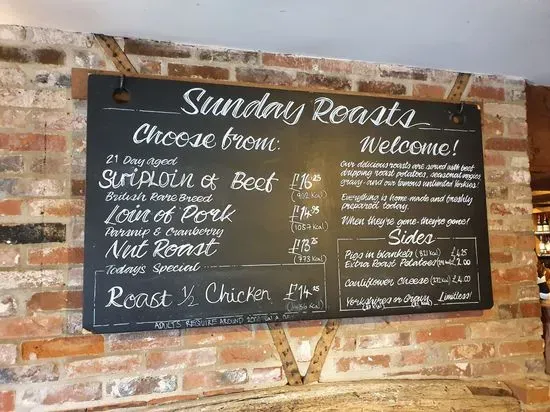 Sunday Roasts
Choose from:
21 Day aged
Sirloin of Beef £16.25
British Rare Breed (902 Kcal)
Loin of Pork £14.95
Parsnip & Cranberry (1057 Kcal)
Nut Roast £13.25
(773 Kcal)
Todays Special
Roast 1/2 Chicken £14.95
Kcal)
ADULTS REQUIRE AROUND 2000
Welcome!
Our delicious roasts are served with beef
dripping roast potatoes, seasonal veggies
gravy and our famous unlimited Yorkies!
Everything is home made and freshly
prepared today.
When they're gone they're gone!
Sides
Pigs in blankets (321 Kcal) £4.25
Extra Roast Potatoes £2.00
Cauliflower Cheese £4.00
Yorkshires or Gravy Limitless!